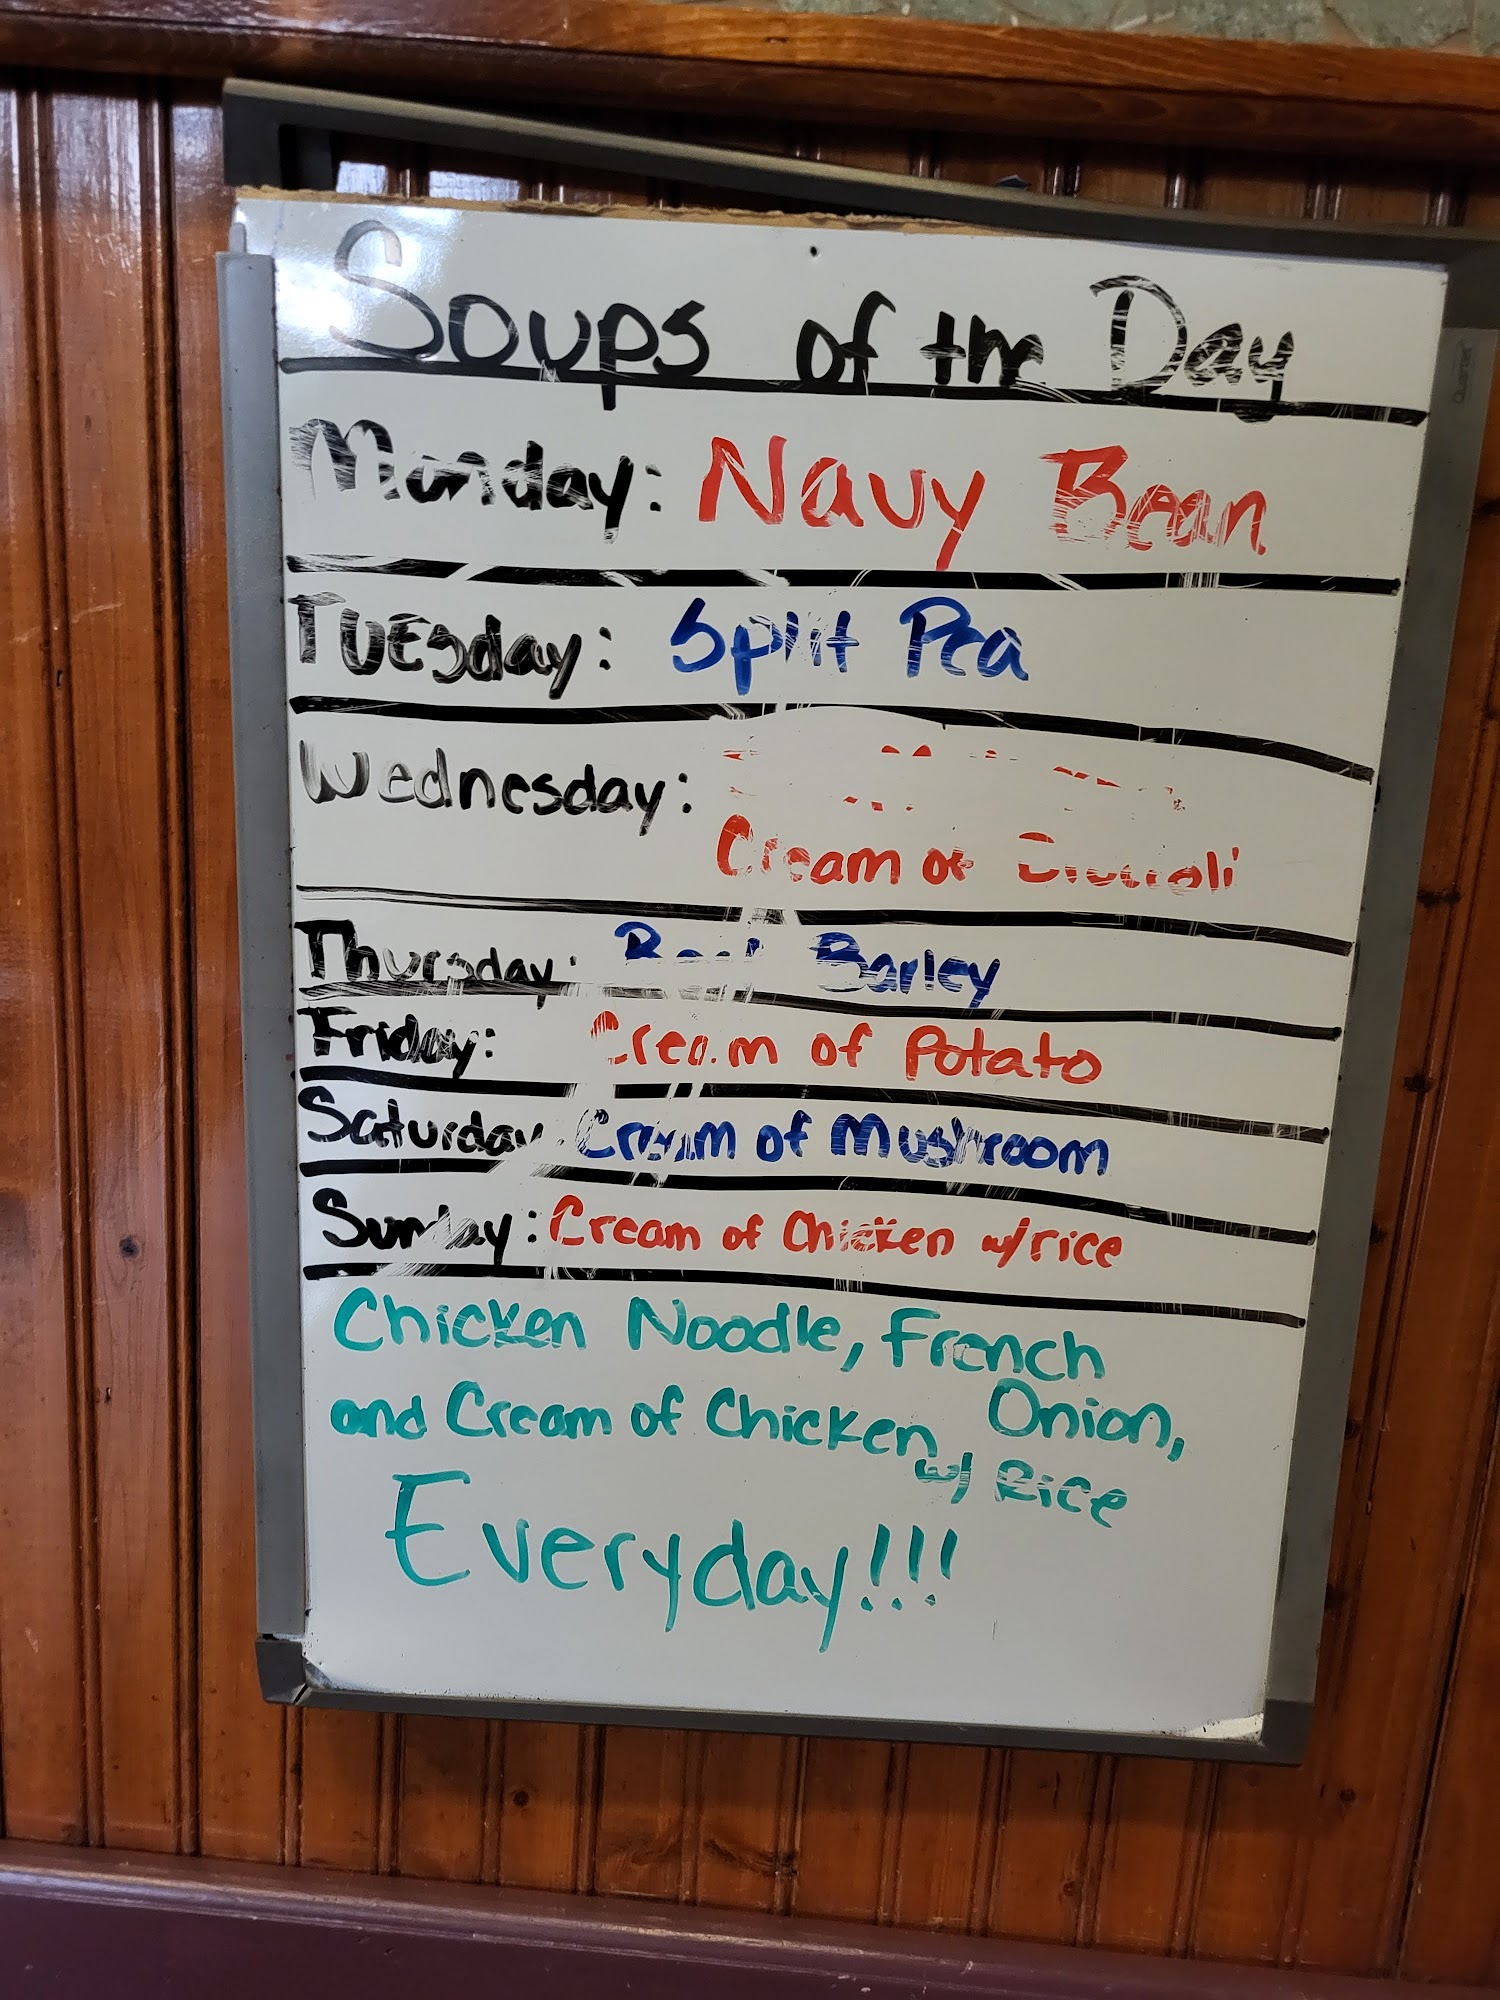 Soups of the Day
Monday: Navy Bean
TUESday: Split Pea
Wednesday:
Cream of Broccoli
Thursday: Beef Barley
Friday: Cream of Potato
Saturday: Cream of Mushroom
Sunday: Cream of Chicken w/rice
Chicken Noodle, French
Onion,
and Cream of Chicken
w/ Rice
Everyday!!!